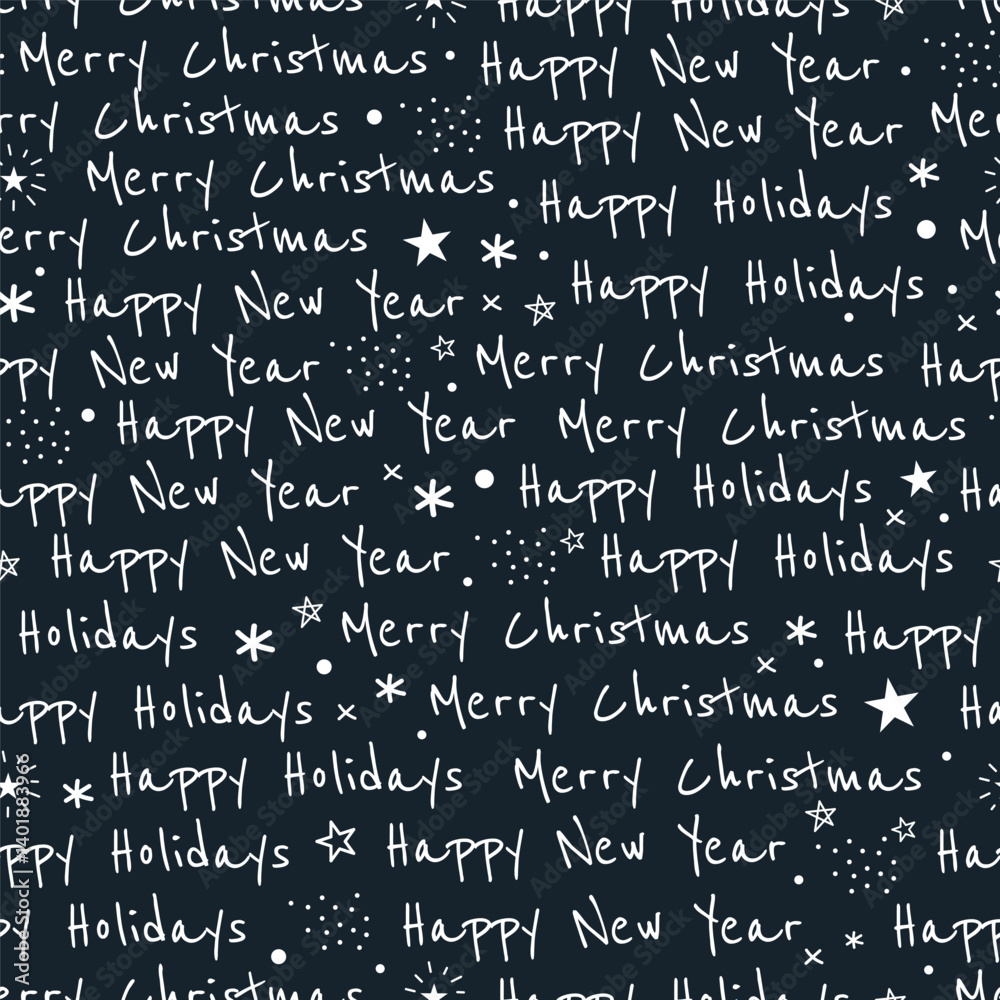 Merry Christmas Happy Holidays
Merry Christmas Happy New Year
rry Christmas Happy New Year Mer
Merry Christmas Happy Holidays
erry Christmas M
Happy New Year Happy Holidays
ppy New Year Merry Christmas Hap
Happy New Year Merry Christmas
appy New Year Happy Holidays Ha
Happy New Year Happy Holidays
Holidays Merry Christmas Happy
appy Holidays Merry Christmas Ha
Happy Holidays Merry Christmas
ppy Holidays Happy New Year Ha
Holidays Happy New Year Happ
erry Christmas Happy Holidays
Adobe Stock | #1401883966